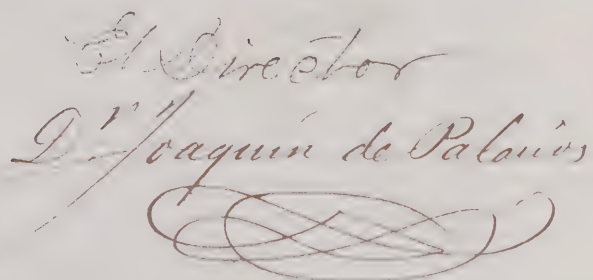 El Director
D.r Joaquín de Palacios